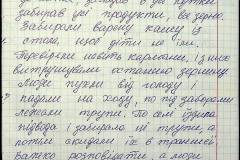 забирав усі продукти, все зерно.
Забирали варену кашу із
стола, щоб діти не їли.
Перевіряли навіть кармани, і з них
витрушували останню зернину.
Люди пухли від голоду і
падали на ходу, по під заборами
лежали трупи. По селі їздила
підвода і забирала ці трупи, а
потім скидали їх в траншеї
Важко розповідати, а люди